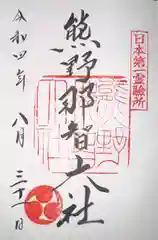 日本第一霊験所
熊野那智大社
令和四年
八月
三十一日